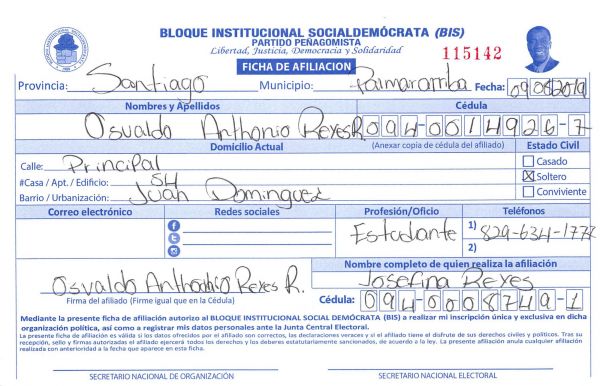 BLOQUE INSTITUCIONAL SOCIALDEMÓCRATA (BIS)
PARTIDO PEÑAGOMISTA
Libertad, Justicia, Democracia y Solidaridad
115142
FICHA DE AFILIACION
Provincia: Santiago Municipio: Palmararriba Fecha: 09082019
Nombres y Apellidos Cédula
Osvaldo Anthonio Reyes R 094-0014926-7
Domicilio Actual (Anexar copia de cédula del afiliado) Estado Civil
Calle: Principal Casado
#Casa / Apt. / Edificio: SH Soltero
Barrio / Urbanización: Juan Dominguez Conviviente
Correo electrónico Redes sociales Profesión/Oficio Teléfonos
Estudiante 1) 829-634-1777
2)
Nombre completo de quien realiza la afiliación
Osvaldo Anthonio Reyes R. Josefina Reyes
Firma del afiliado (Firme igual que en la Cédula) Cédula: 094-0008749-1
Mediante la presente ficha de afiliación autorizo al BLOQUE INSTITUCIONAL SOCIAL DEMÓCRATA (BIS) a realizar mi inscripción única y exclusiva en dicha
organización política, así como a registrar mis datos personales ante la Junta Central Electoral.
La presente ficha de afiliación es válida si los datos ofrecidos por el afiliado son correctos, las declaraciones veraces y si el afiliado tiene el disfrute de sus derechos civiles y políticos. Tras su
recepción, sello y firmas autorizadas el afiliado ejercerá todos los derechos y los deberes estatutariamente sancionados, de acuerdo a la ley. La presente afiliación anula cualquier afiliación
realizada con anterioridad a la fecha que aparece en esta ficha.
SECRETARIO NACIONAL DE ORGANIZACIÓN SECRETARIO NACIONAL ELECTORAL